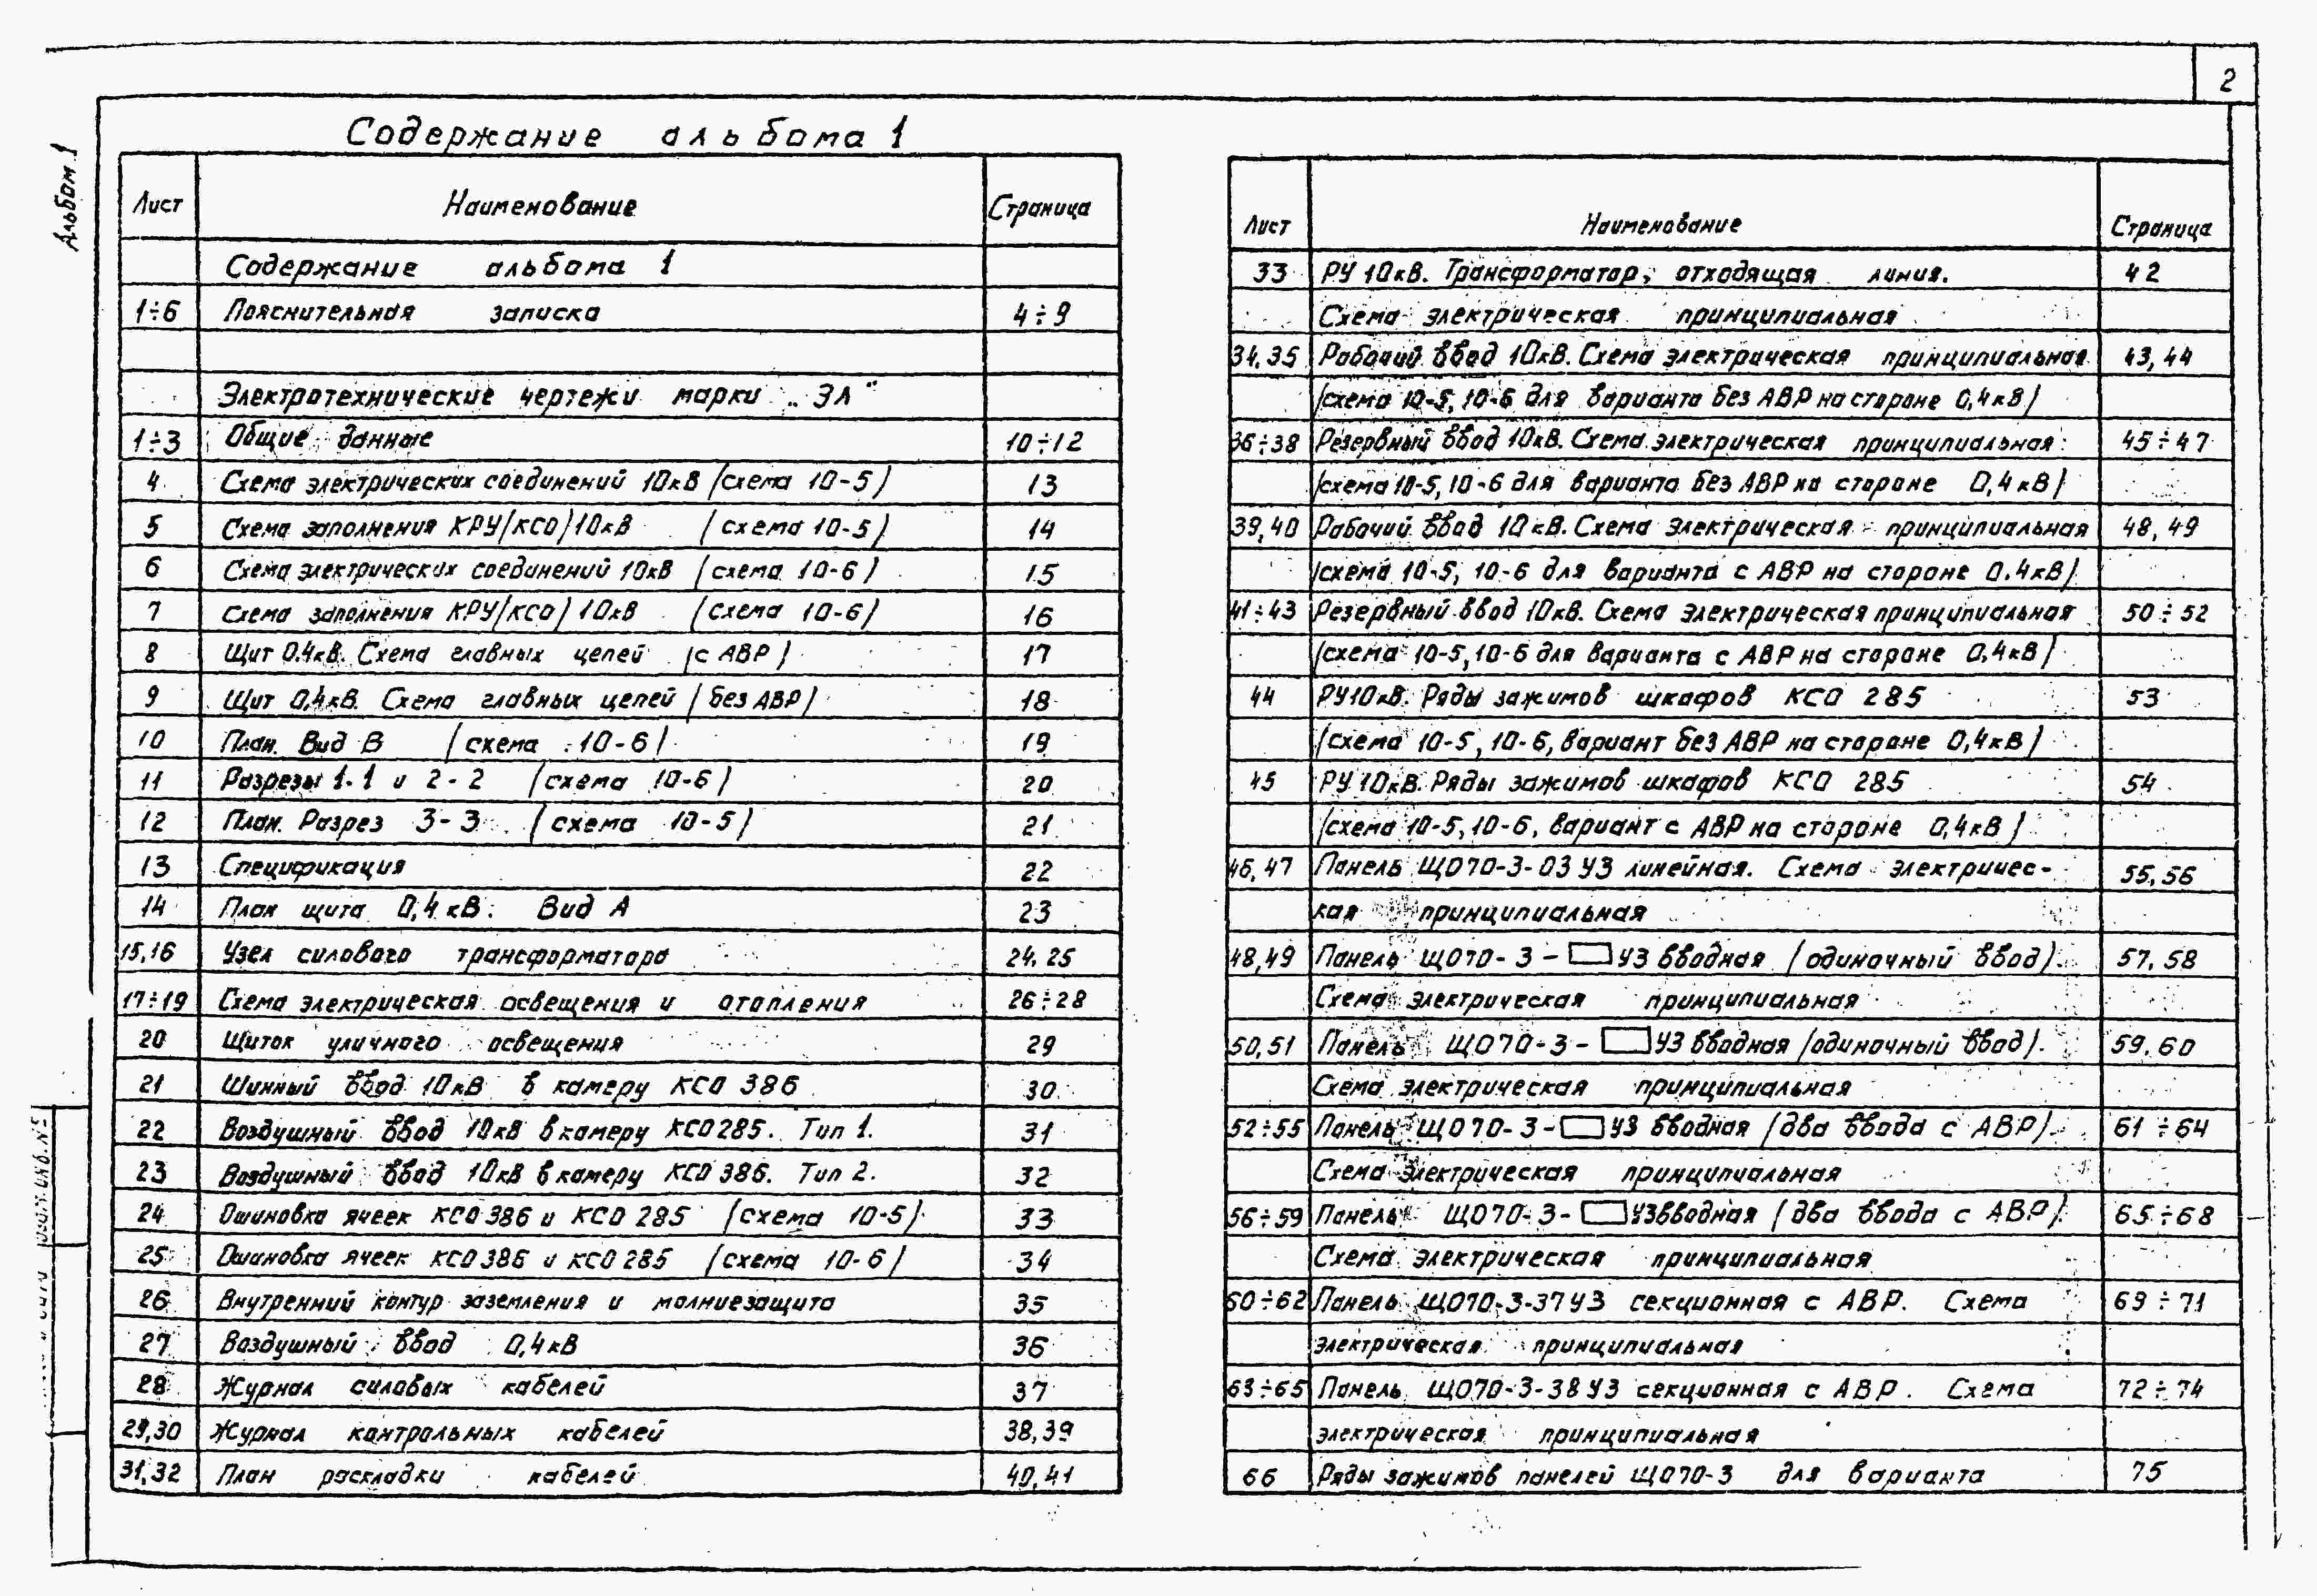 2
Альбом 1
Содержание альбома 1
Лист Наименование Страница
Содержание альбома 1
1÷6 Пояснительная записка 4÷9
Электротехнические чертежи марки „ЭЛ"
1÷3 Общие данные 10÷12
4 Схема электрических соединений 10кВ (схема 10-5) 13
5 Схема заполнения КРУ(КСО)10кВ (схема 10-5) 14
6 Схема электрических соединений 10кВ (схема 10-6) 15
7 Схема заполнения КРУ(КСО)10кВ (схема 10-6) 16
8 Щит 0.4кВ. Схема главных цепей (с АВР) 17
9 Щит 0,4кВ. Схема главных цепей (без АВР) 18
10 План. Вид В (схема 10-6) 19
11 Разрезы 1-1 и 2-2 (схема 10-6) 20
12 План. Разрез 3-3 (схема 10-5) 21
13 Спецификация 22
14 План щита 0,4кВ. Вид А 23
15,16 Узел силового трансформатора 24,25
17÷19 Схема электрическая освещения и отопления 26÷28
20 Щиток уличного освещения 29
21 Шинный ввод 10кВ в камеру КСО 386 30
22 Воздушный ввод 10кВ в камеру КСО285. Тип 1. 31
23 Воздушный ввод 10кВ в камеру КСО 386. Тип 2. 32
24 Ошиновка ячеек КСО386 и КСО 285 (схема 10-5) 33
25 Ошиновка ячеек КСО386 и КСО285 (схема 10-6) 34
26 Внутренний контур заземления и молниезащита 35
27 Воздушный ввод 0,4кВ 36
28 Журнал силовых кабелей 37
29,30 Журнал контрольных кабелей 38,39
31,32 План раскладки кабелей 40,41
Лист Наименование Страница
33 РУ 10кВ. Трансформатор, отходящая линия. 42
Схема электрическая принципиальная
34,35 Рабочий ввод 10кВ. Схема электрическая принципиальная 43,44
(схема 10-5, 10-6 для варианта без АВР на стороне 0,4кВ)
36÷38 Резервный ввод 10кВ. Схема электрическая принципиальная 45÷47
(схема 10-5, 10-6 для варианта без АВР на стороне 0,4кВ)
39,40 Рабочий ввод 10кВ. Схема электрическая принципиальная 48,49
(схема 10-5, 10-6 для варианта с АВР на стороне 0.4кВ)
41÷43 Резервный ввод 10кВ. Схема электрическая принципиальная 50÷52
(схема 10-5, 10-6 для варианта с АВР на стороне 0,4кВ)
44 РУ10кВ. Ряды зажимов шкафов КСО 285 53
(схема 10-5, 10-6, вариант без АВР на стороне 0,4кВ)
45 РУ 10кВ. Ряды зажимов шкафов КСО 285 54
(схема 10-5, 10-6, вариант с АВР на стороне 0,4кВ)
46,47 Панель ЩО70-3-03 У3 линейная. Схема электричес- 55,56
кая принципиальная
48,49 Панель ЩО70-3-□У3 вводная (одиночный ввод). 57,58
Схема электрическая принципиальная
50,51 Панель ЩО70-3-□У3 вводная (одиночный ввод). 59,60
Схема электрическая принципиальная
52÷55 Панель ЩО70-3-□У3 вводная (два ввода с АВР). 61÷64
Схема электрическая принципиальная
56÷59 Панель ЩО70-3-□У3 вводная (два ввода с АВР). 65÷68
Схема электрическая принципиальная
60÷62 Панель ЩО70-3-37У3 секционная с АВР. Схема 69÷71
электрическая принципиальная
63÷65 Панель ЩО70-3-38У3 секционная с АВР. Схема 72÷74
электрическая принципиальная
66 Ряды зажимов панелей ЩО70-3 для варианта 75